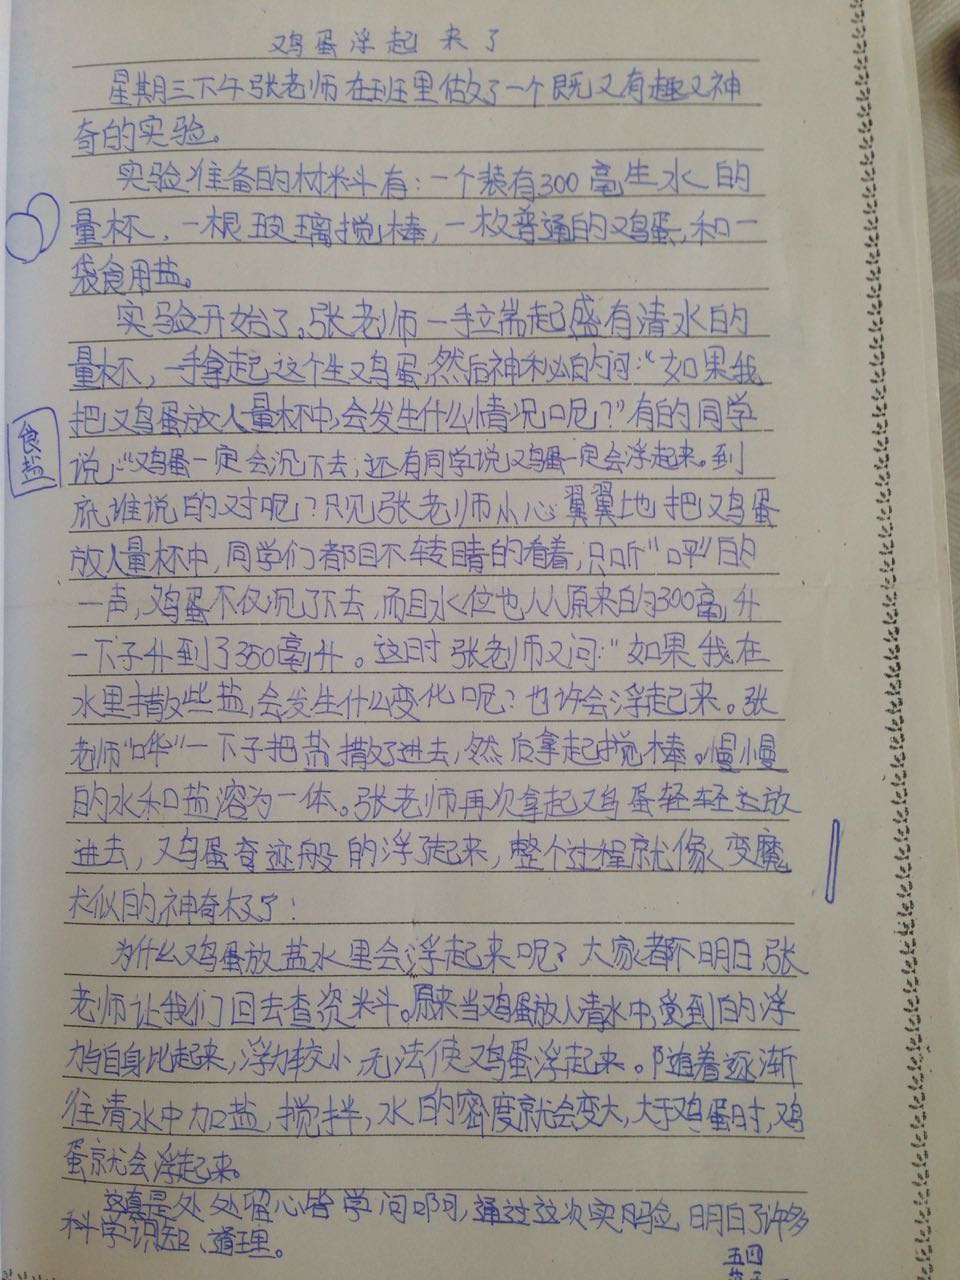 鸡蛋浮起来了
星期三下午张老师在班里做了一个既又有趣又神
奇的实验。
实验准备的材料有：一个装有300毫生水的
量杯，一根玻璃搅棒，一枚普通的鸡蛋，和一
袋食用盐。
实验开始了。张老师一手端起盛有清水的
量杯，一手拿起这个生鸡蛋，然后神秘的问：“如果我
把鸡蛋放入量杯中，会发生什么情况呢？”有的同学
食盐
说“鸡蛋一定会沉下去，还有同学说鸡蛋一定会浮起来。到
底谁说的对呢？只见张老师小心翼翼地把鸡蛋
放入量杯中，同学们都目不转睛的看着，只听“呯”的
一声，鸡蛋不仅沉了下去，而且水位也从原来的300毫升
一下子升到了350毫升。这时张老师又问：“如果我在
水里撒些盐，会发生什么变化呢？也许会浮起来。张
老师“哗”一下子把盐撒了进去，然后拿起搅棒。慢慢
的水和盐溶为一体。张老师再次拿起鸡蛋轻轻放
进去，鸡蛋奇迹般的浮了起来，整个过程就像变魔
术似的，神奇极了！
为什么鸡蛋放盐水里会浮起来呢？大家都不明白，张
老师让我们回去查资料。原来当鸡蛋放入清水中，受到的浮
力与自身比起来，浮力较小，无法使鸡蛋浮起来。随着逐渐
往清水中加盐，搅拌，水的密度就会变大，大于鸡蛋时，鸡
蛋就会浮起来。
这真是处处留心皆学问啊，通过这次实验，明白了许多
科学识知、道理。
五四